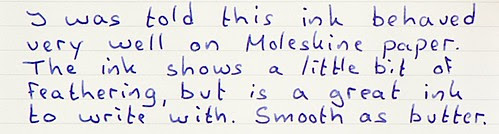 I was told this ink behaved
very well on Moleskine paper.
The ink shows a little bit of
feathering, but is a great ink
to write with. Smooth as butter.